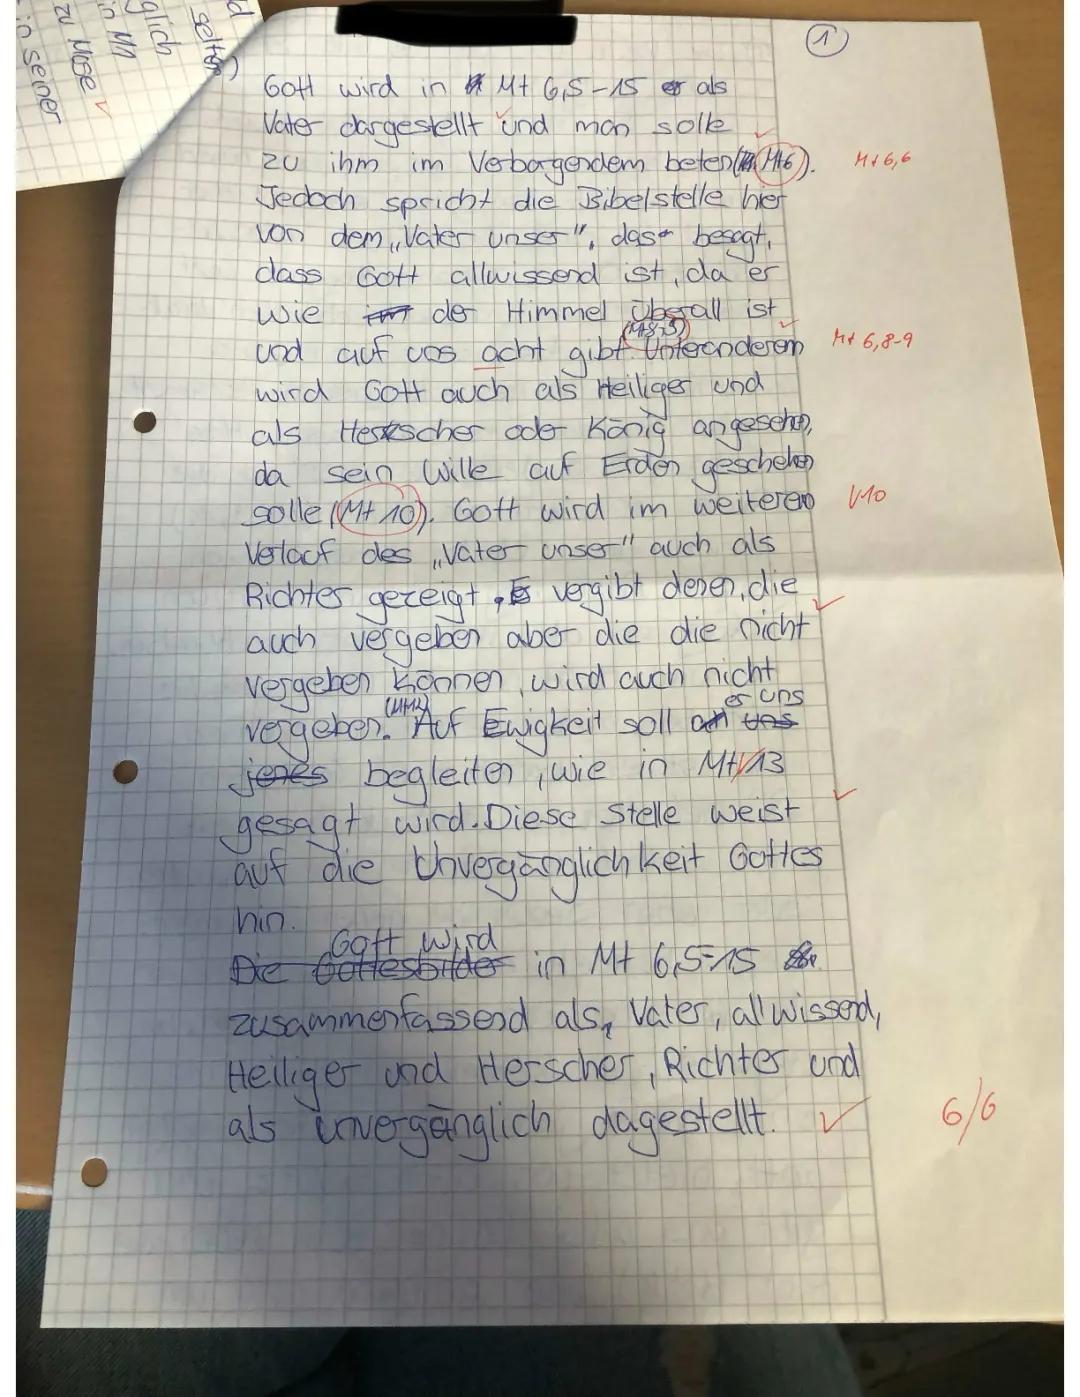 1
Gott wird in Mt 6,5-15 als
Vater dargestellt und man solle
zu ihm im Verborgendem beten (Mt6). Mt 6,6
Jedoch spricht die Bibelstelle hier
von dem „Vater unser“, dass besagt,
dass Gott allwissend ist, da er
wie der Himmel überall ist
und auf uns acht gibt. Unteranderem Mt 6,8-9
wird Gott auch als Heiliger und
als Herrscher oder König angesehen,
da sein Wille auf Erden geschehen
solle (Mt 10). Gott wird im weiteren V10
Verlauf des „Vater unser“ auch als
Richter gezeigt, Er vergibt denen, die
auch vergeben aber die die nicht
vergeben können, wird auch nicht
er uns
vergeben. Auf Ewigkeit soll
jenes begleiten, wie in Mt 13
gesagt wird. Diese Stelle weist
auf die Unvergänglichkeit Gottes
hin.
Gott wird
Die Gottesbilder in Mt 6,5-15
zusammenfassend als, Vater, allwissend,
Heiliger und Herscher, Richter und
als unvergänglich dagestellt. 6/6
d
selbe
glich
in Mt
zu Mose
in seiner